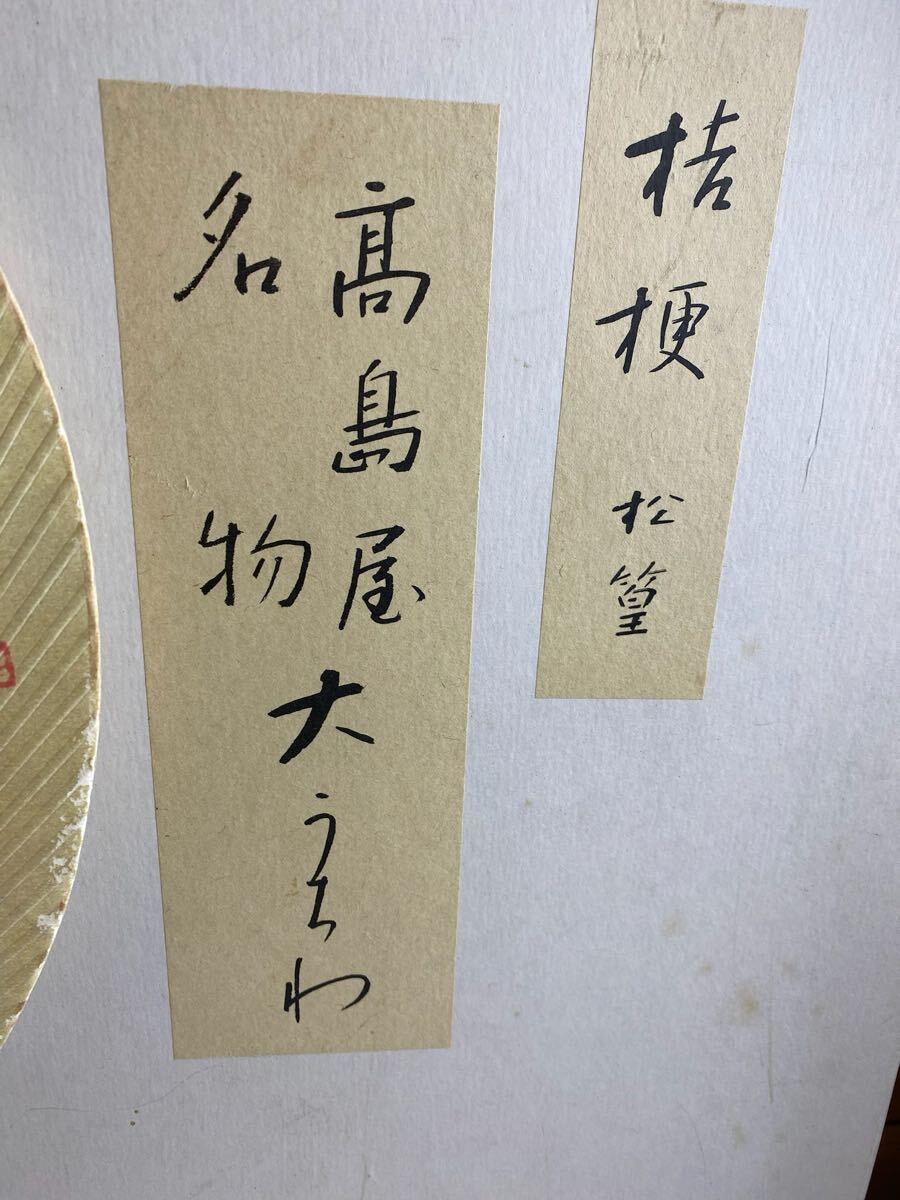 桔梗 松篁
髙島屋
名物
大うちわ